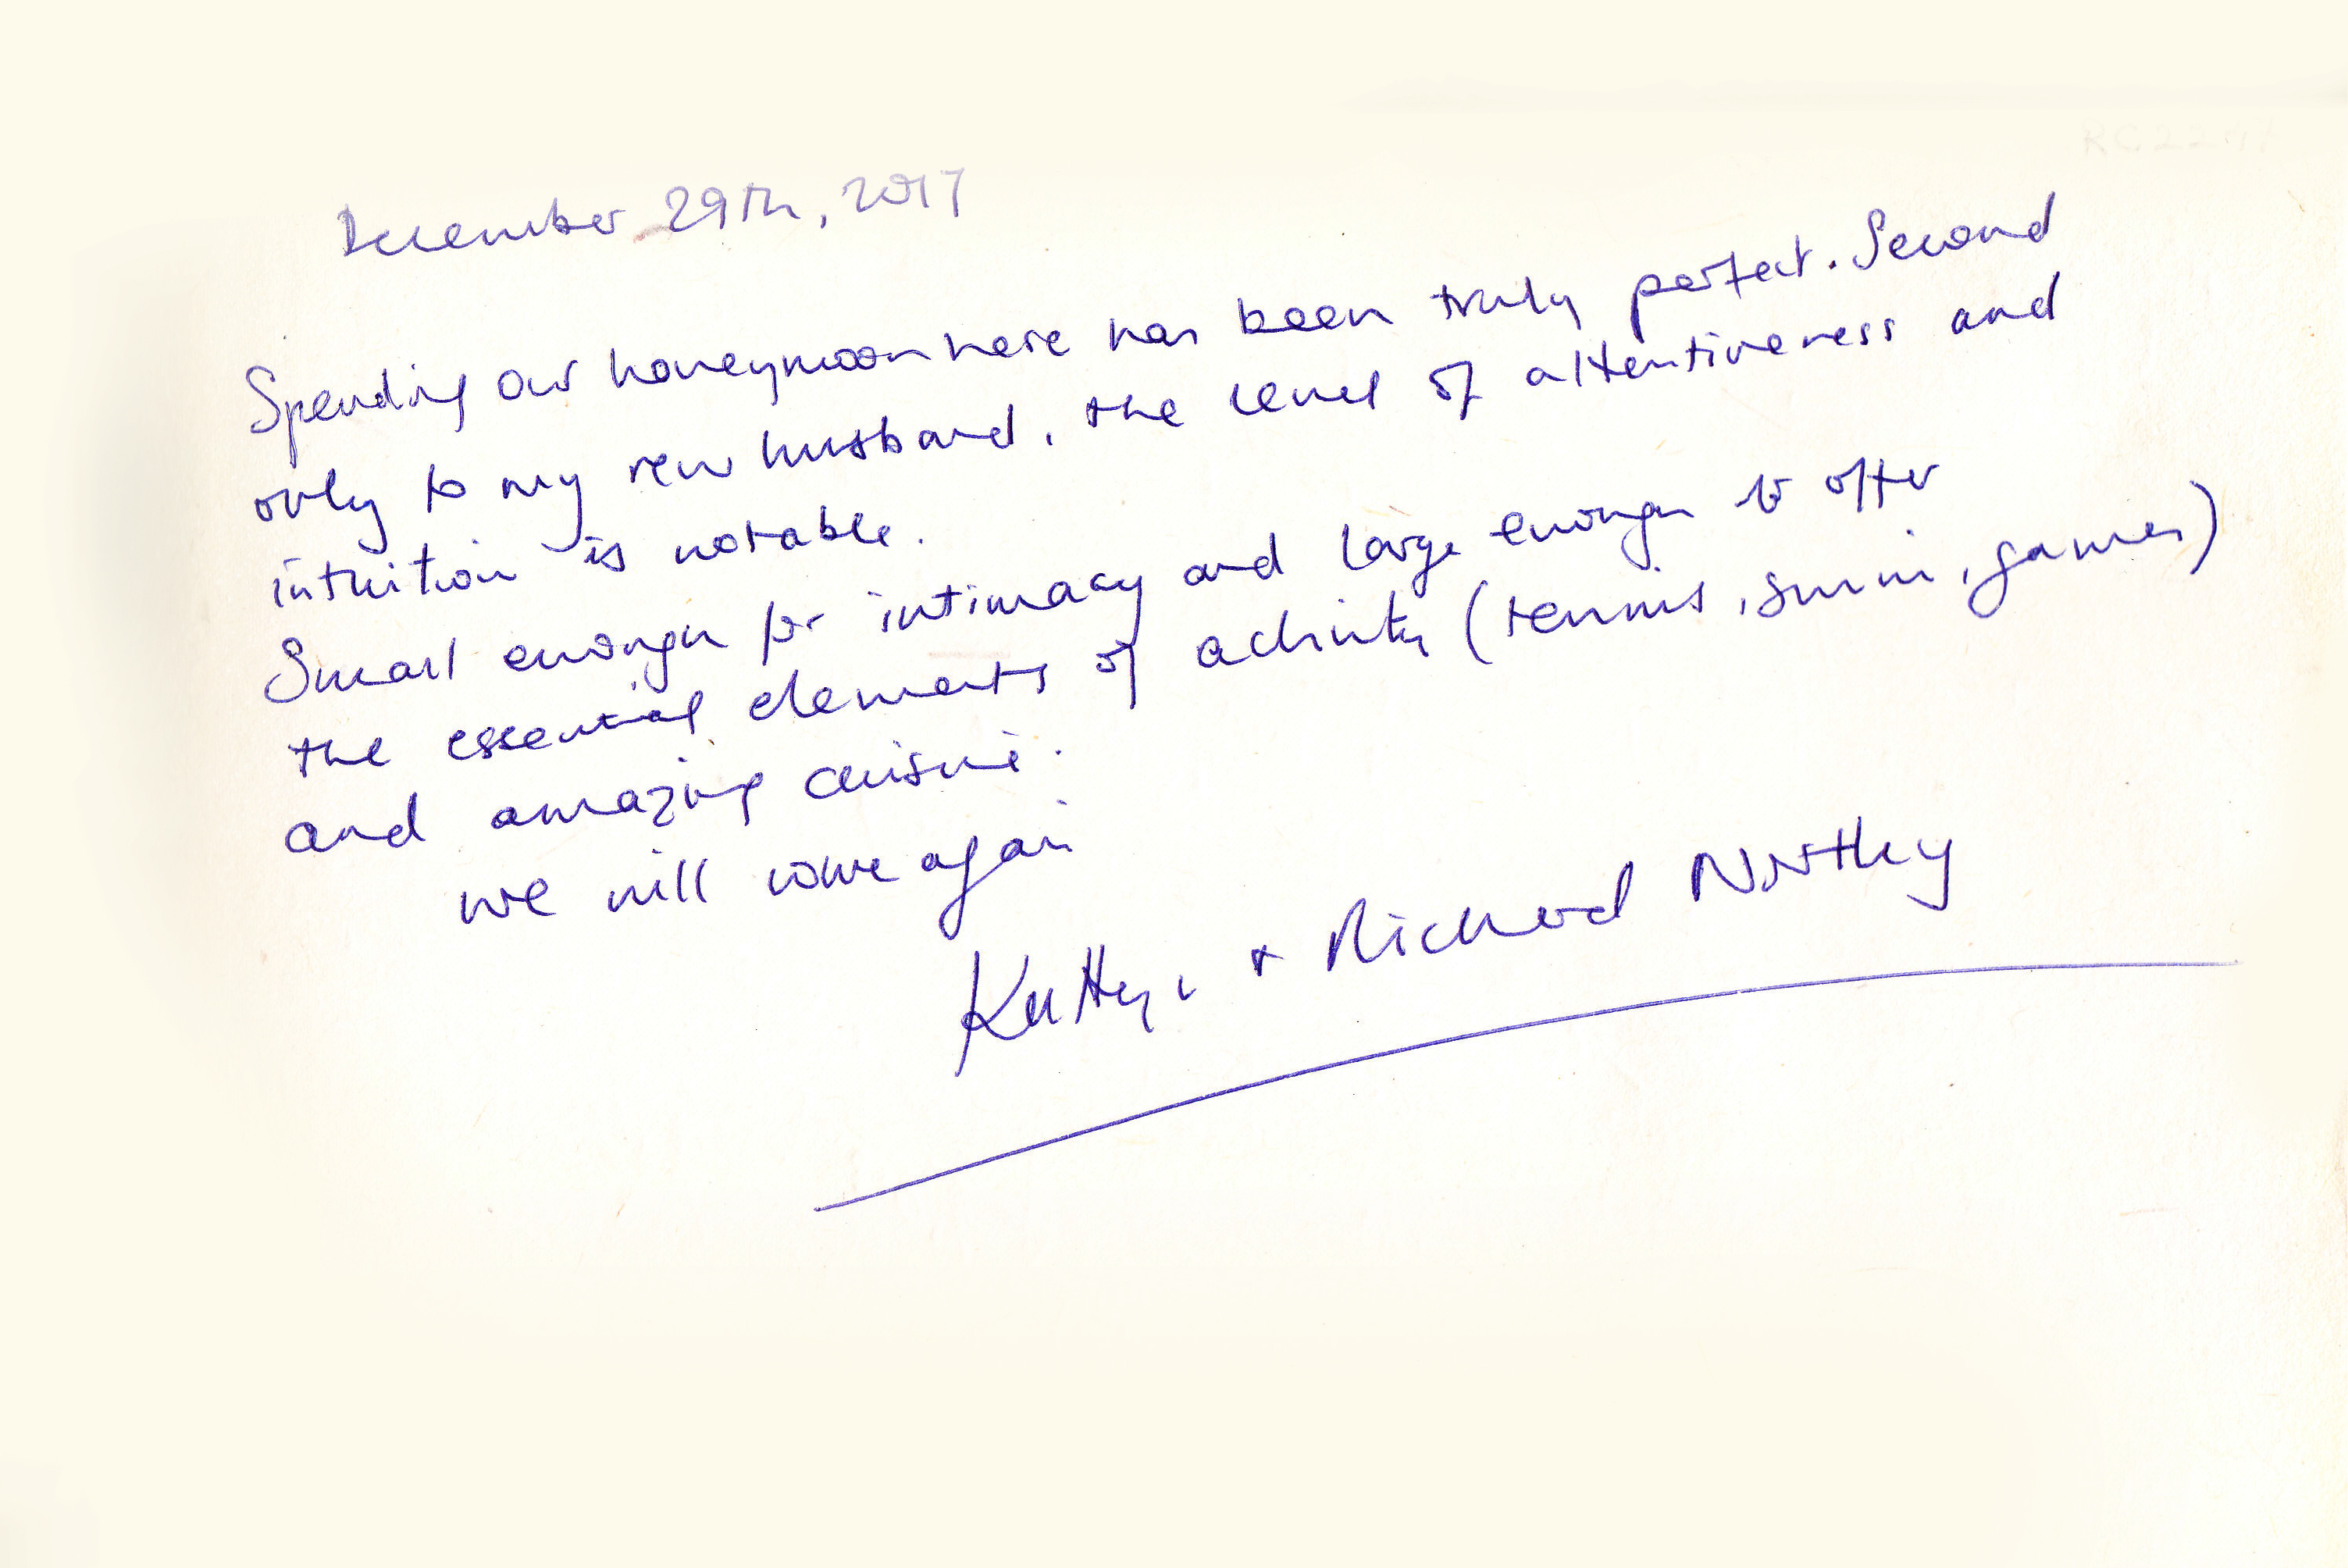 December 29th, 2017
Spending our honeymoon here has been truly perfect. Second
only to my new husband, the level of attentiveness and
intuition is notable.
Small enough for intimacy and large enough to offer
the essential elements of activity (tennis, swim, games)
and amazing cuisine.
we will come again
+ Richard